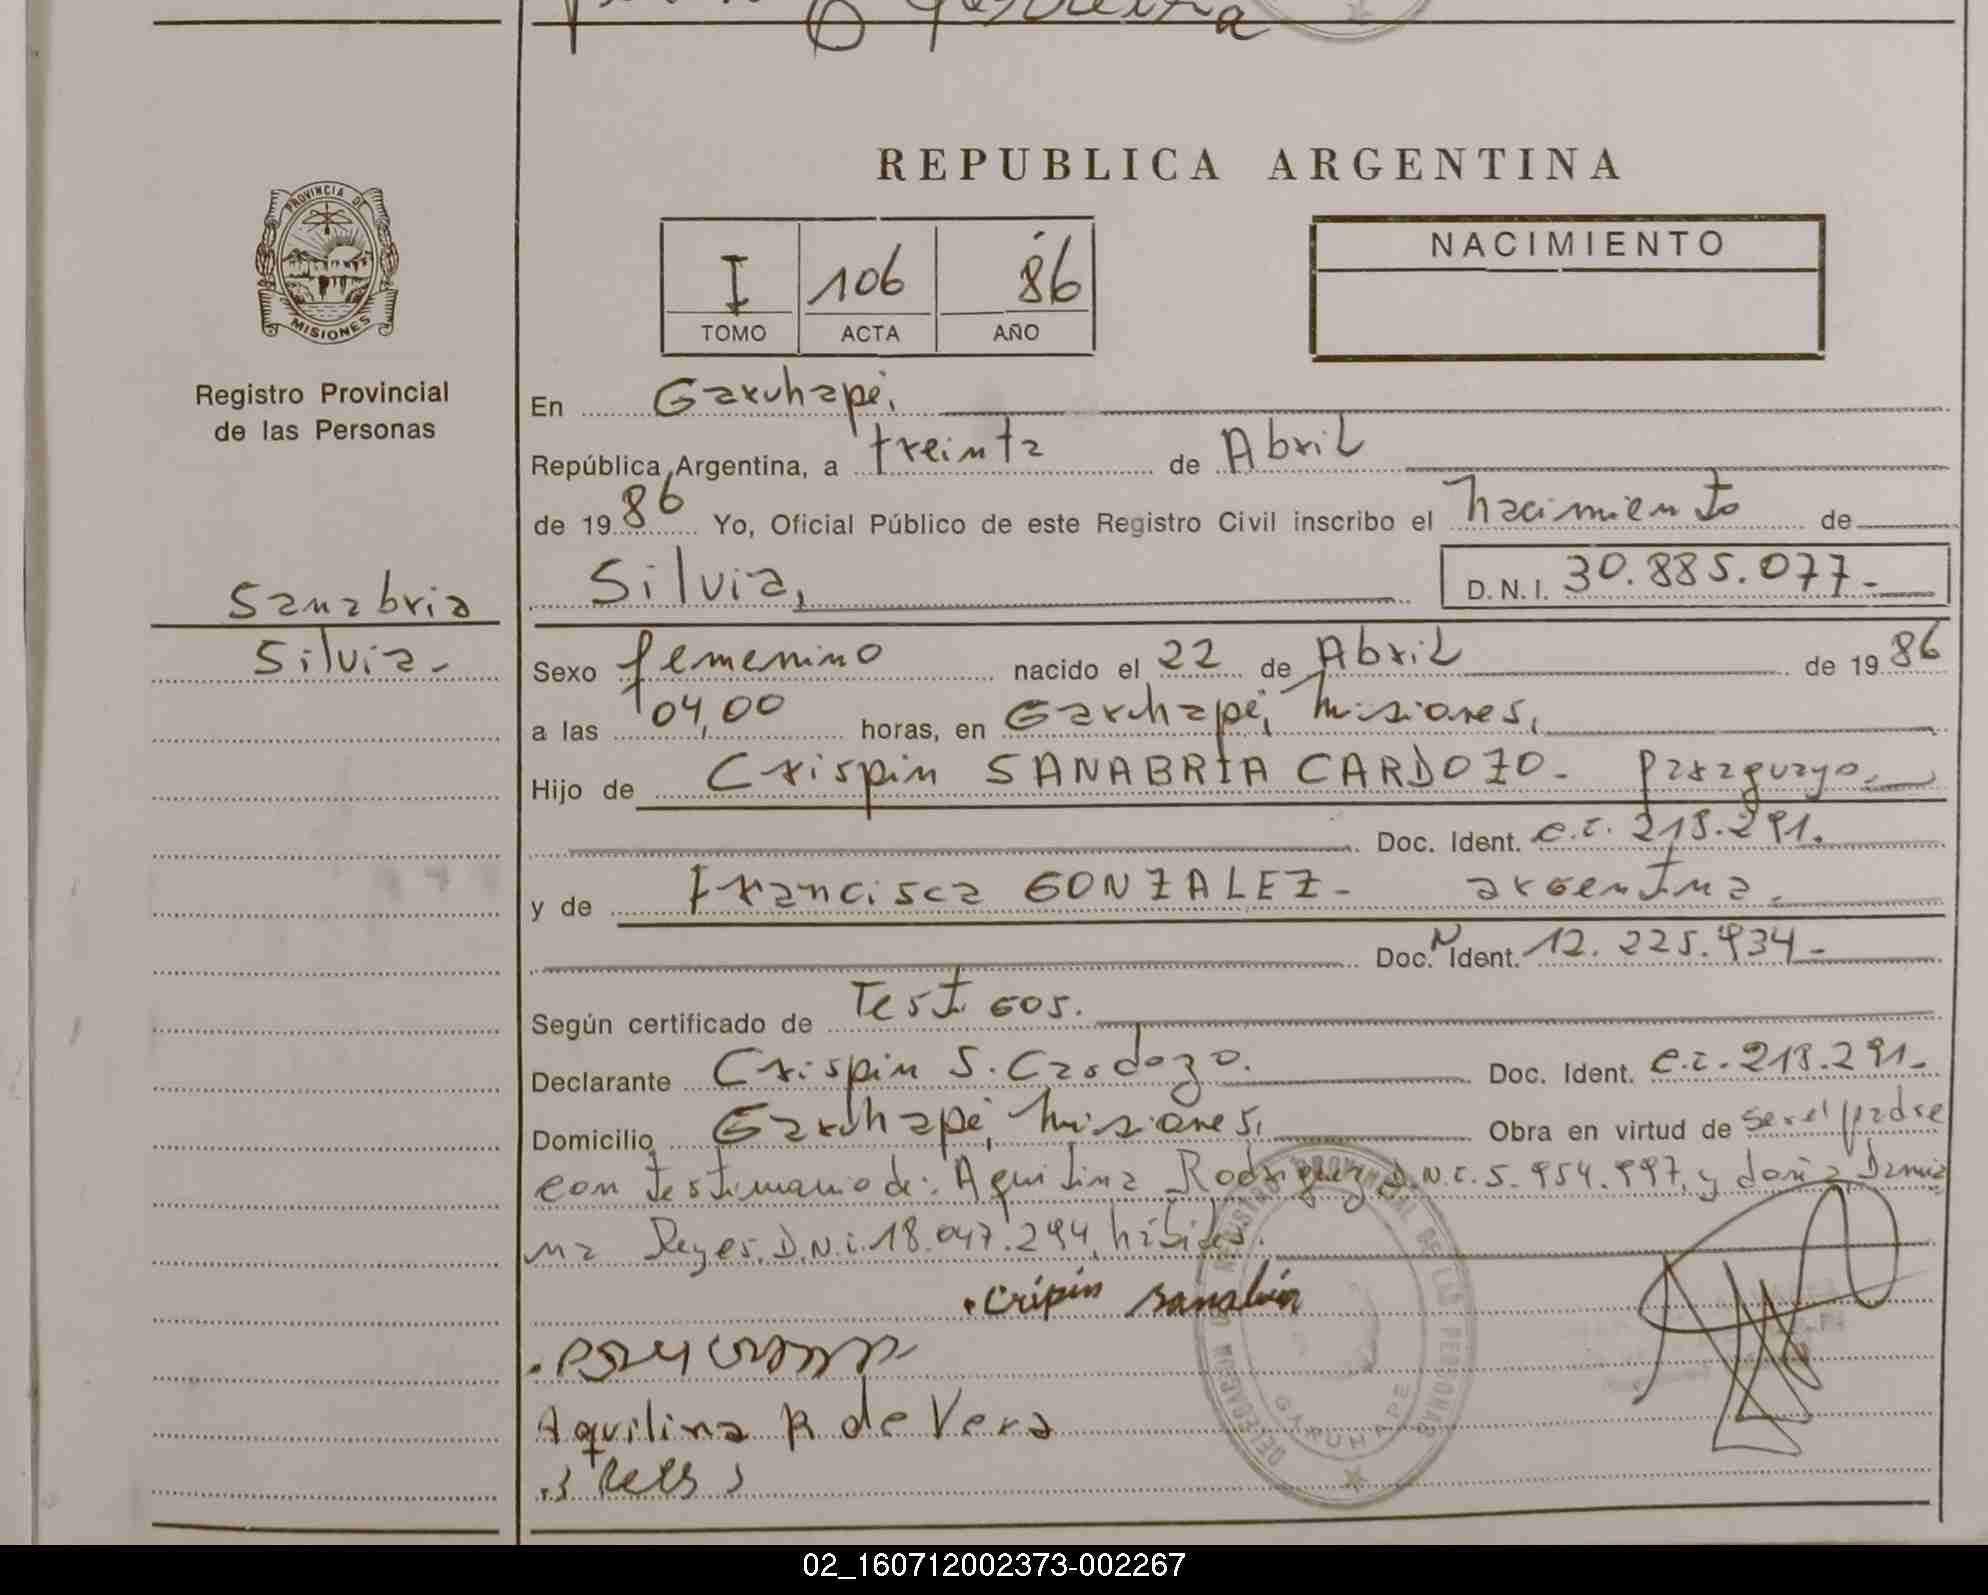 PROVINCIA DE
MISIONES
Registro Provincial
de las Personas
Sanabria
Silvia.-
REPUBLICA ARGENTINA
I 106 86
TOMO ACTA AÑO
NACIMIENTO
En Garuhapé,
República Argentina, a treinta de Abril
de 19 86 Yo, Oficial Público de este Registro Civil inscribo el nacimiento de
Silvia, D.N.I. 30.885.077-
Sexo femenino nacido el 22 de Abril de 19 86
a las 04,00 horas, en Garuhapé, Misiones,
Hijo de Crispin SANABRIA CARDOZO- Paraguayo.
Doc. Ident. C.I. 219.291.
y de Francisca GONZALEZ- argentina.
Doc. N Ident. 12.225.934-
Según certificado de Testigos.
Declarante Crispin S. Cardozo. Doc. Ident. C.I. 219.291-
Domicilio Garuhapé, Misiones, Obra en virtud de ser el padre
con testimonio de: Aquilina Rodriguez D.N.I. 5.954.997, y doña Damia
na Reyes. D.N.I. 18.047.294, hábiles.
Cripin Sanabria
Aquilina R de Vera
DELEGACION REGISTRO PROVINCIAL DE LAS PERSONAS
GARUHAPE
02_160712002373-002267